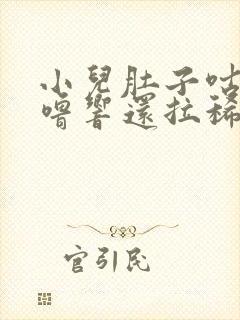 小兒肚子咕
嚕響還拉稀
官引民